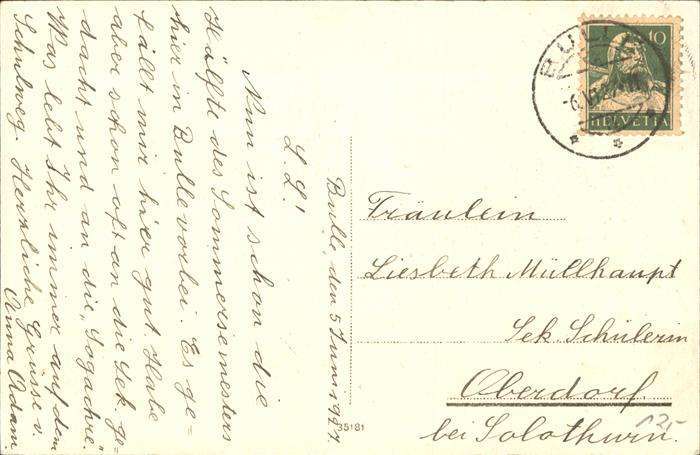 Bulle, den 5 Juni 1927
L. L!
Nun ist schon die
Hälfte des Sommersemesters
hier in Bulle vorbei. Es ge-
fällt mir hier gut. Habe
aber schon oft an die Sek. ge-
dacht und an die „Sogachre."
Was lebt Ihr immer auf dem
Schulweg. Herzliche Grüsse v.
Anna Adam.
BULLE
HELVETIA
10
Fräulein
Liesbeth Müllhaupt
Sek. Schülerin
Oberdorf
bei Solothurn.
35181
12.-